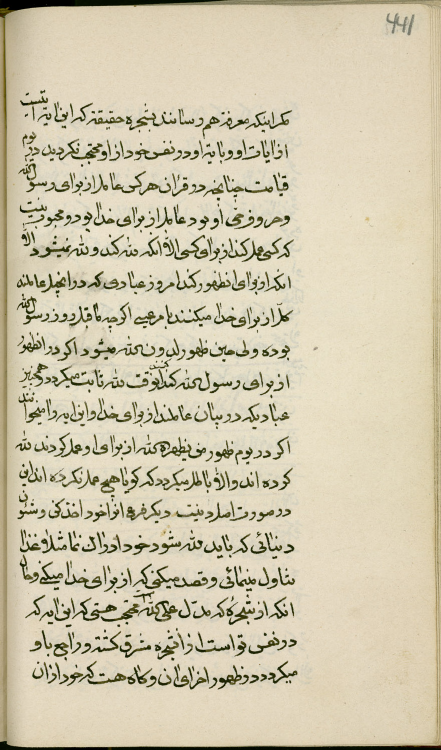 441
مگر اینکه معرفة هم رسانند بشجره حقیقة که این ایه ایست
از ایات او و بایة او در نفس خود از او محتجب نگردیدن در یوم
قیامت چنانچه در قران هر کس عامل از برای رسول الله
و حروف حی او بود عامل از برای خدا بود و محجوب نیست
که کسی عمل کند از برای کسی الا انکه لله کند و لله نمیشود الا
انکه از برای انظهور کند امروز عبادی که در انجیل عاملند
کلا از برای خدا میکنند بامر عیسی اگرچه تا قبل روز رسول الله
بوده ولی حین ظهور لدون الله میشود اگر در انظهور
از برای رسول الله کنند انوقت لله ثابت میگردد و همچنین
عبادیکه در بیان عاملند از برای خدا و این ایه را میخوانند
اگر در یوم ظهور من یظهره الله از برای او عمل کردند لله
کرده اند والا باطل میگردد که گویا هیچ عمل نکرده اند این
در صورت اصل دینت دیگر فرع انرا خود اخذ کن و شئون
دنیائی که باید لله شود خود ادراک نما مثلا غذا
تناول مینمائی و قصد میکنی که از برای خدا میکنی و حال
انکه از شجرهٔ که مدل علی الله است محتجب هستی که این ایه که
در نفس تو است از ان شجره مشرق گشته و راجع باو
میگردد در ظهور اخرای ان و گاه هست که خود از ان